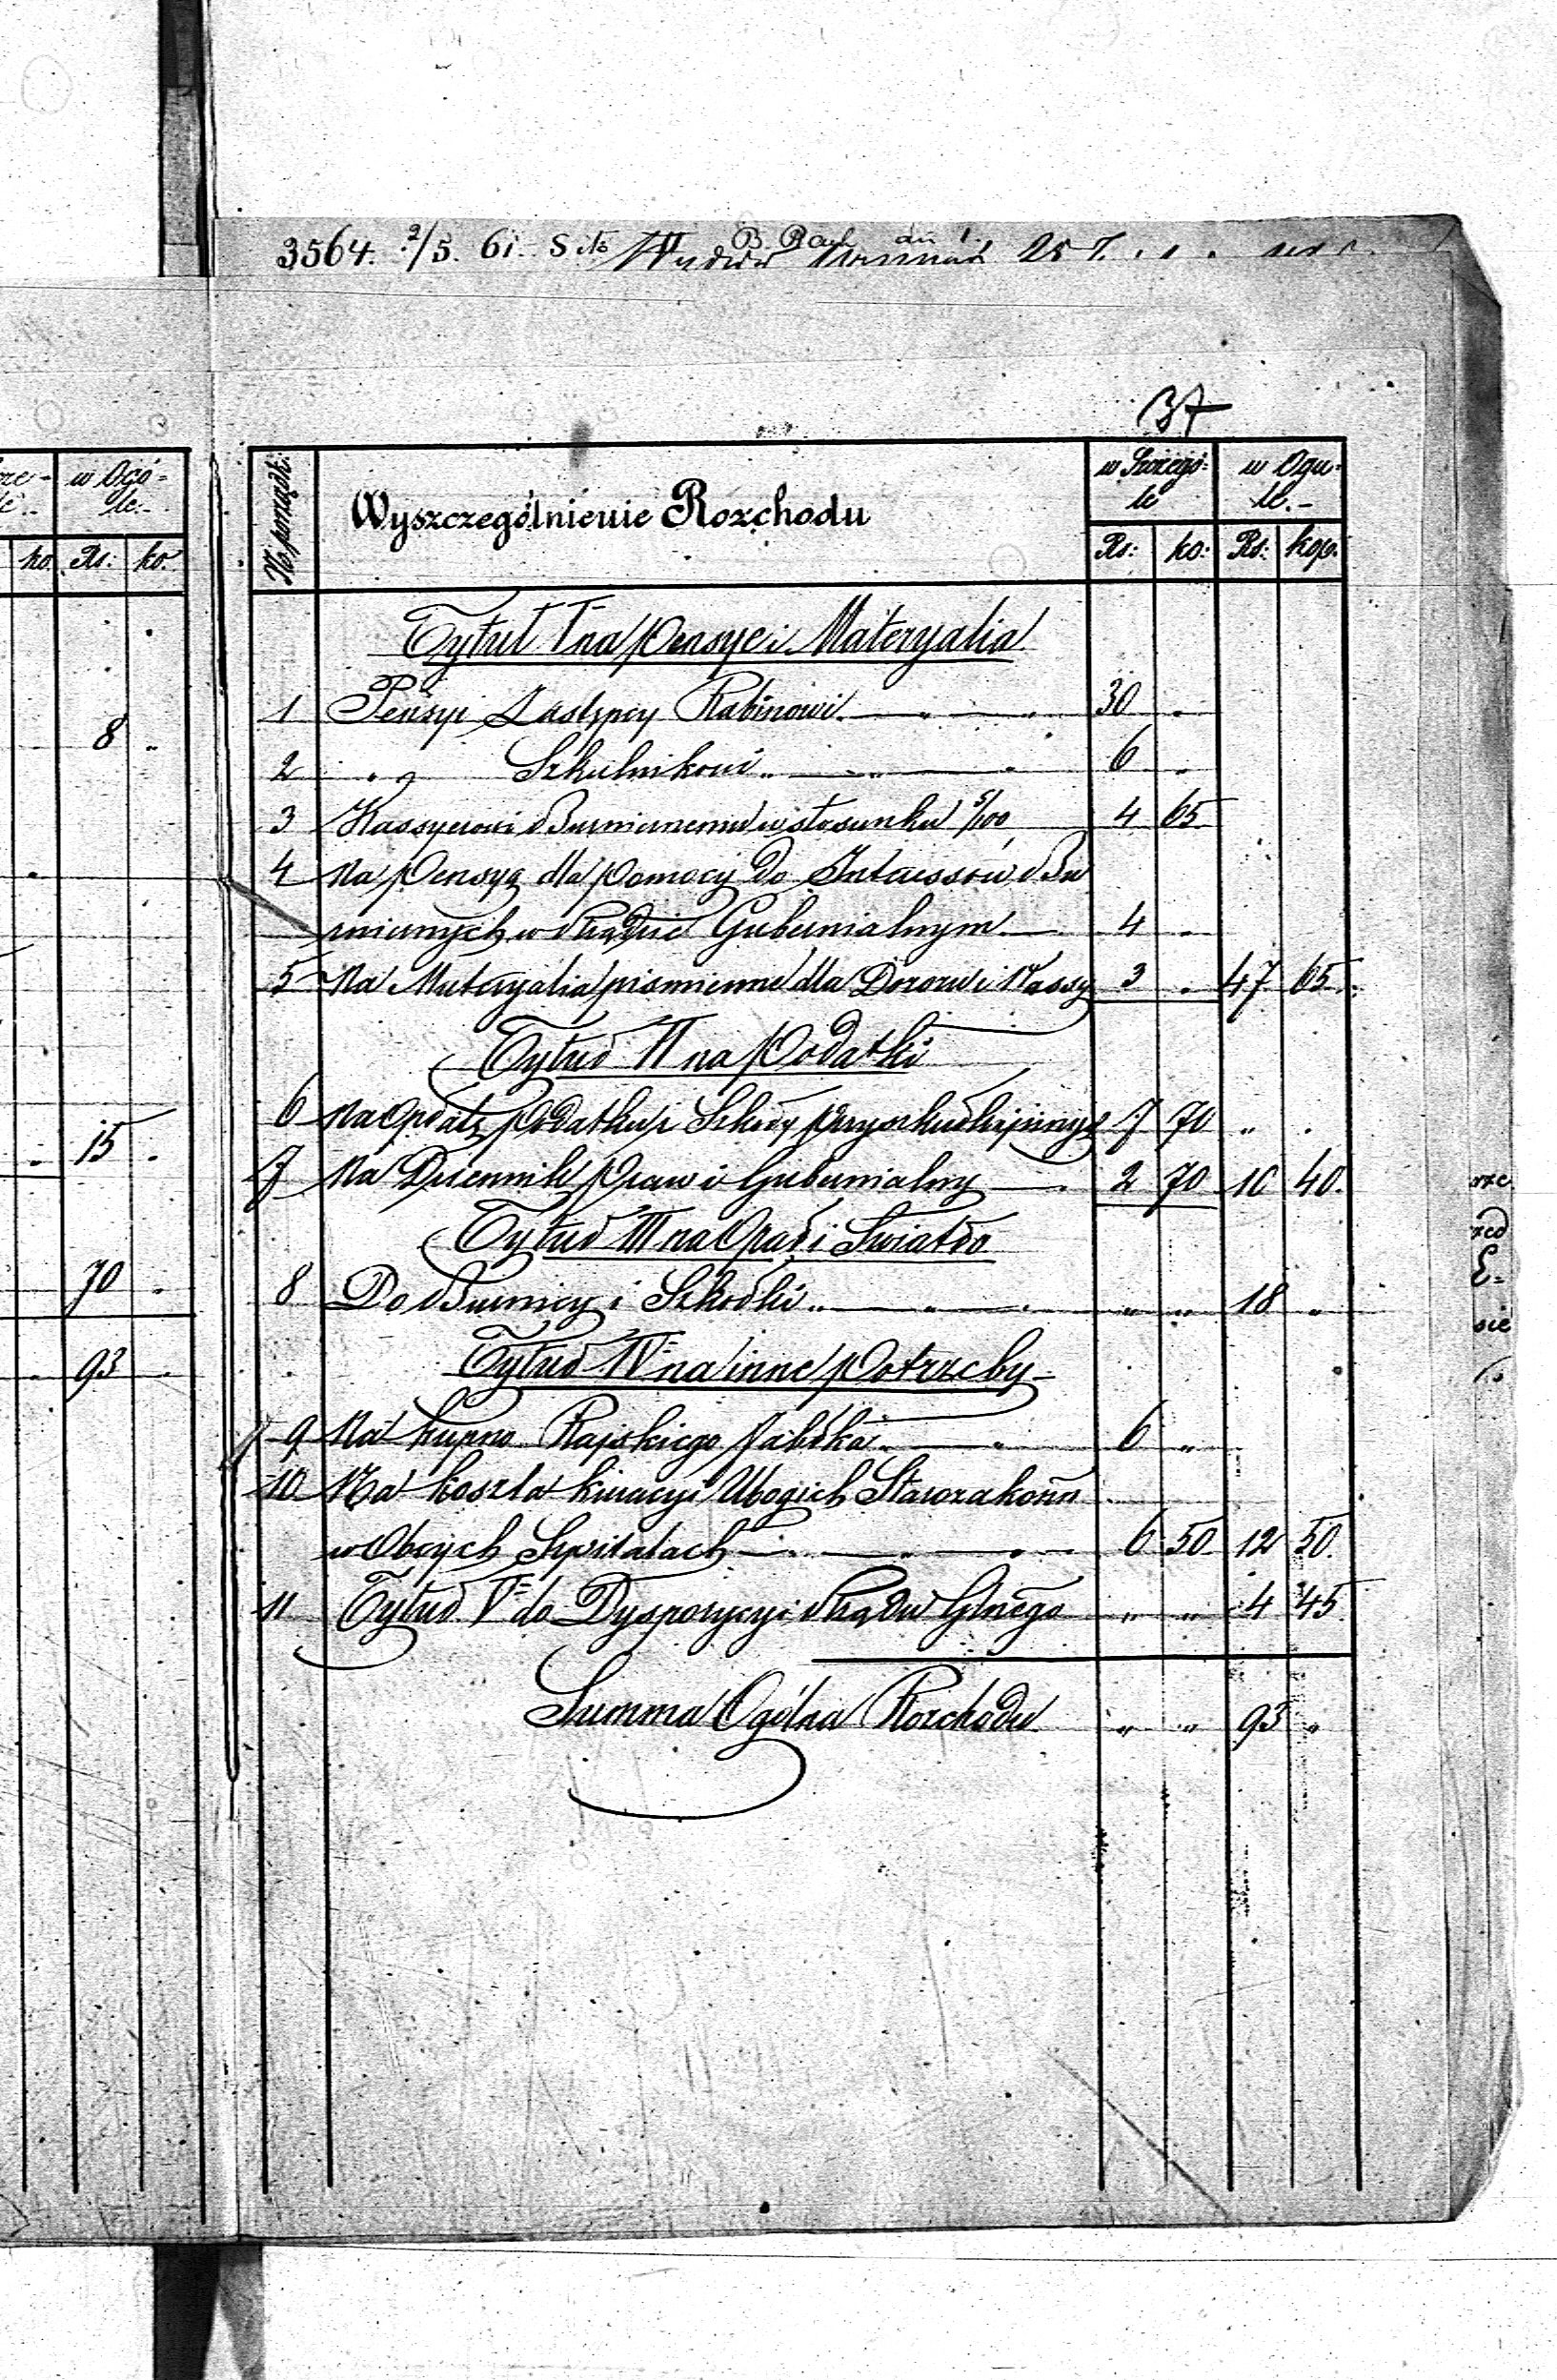 3564. 2/5. 61.
37
w Ogó-
le.-
ko. Rs: ko.
8 "
15 .
70 .
93 .
N. porządk: Wyszczególnienie Rozchodu w Szczegó- w Ogu-
le le.-
Rs: ko: Rs: kop.
Tytuł I na Pensye i Materyalia
1 Pensyi Zastępcy Rabinowi 30 "
2 " " Szkulnikowi 6 "
3 Kassyerowi Bużnicznemu w stosunku 5/100 4 65
4 Na Pensyą dla Pomocy do Intaessów Bu
żnicznych w Rządzie Gubernialnym 4 "
5 Na Materyalia pismienne dla Dozoru i Kassy 3 . 47 65
Tytuł II na Podatki
6 Na Opłatę Podatku i Szkoły 7 70 " .
7 Na Dziennik Praw i Gubernialny 2 70 10 40.
Tytuł III na Opał i Światło
8 Do Bużnicy i Szkółki " " 18 "
Tytuł IV na inne Potrzeby
9 Na kupno Rajskiego Jabłka 6 "
10 Na koszta kuracyi Ubogich Starozakonn
w Obcych Szpitalach 6 50 12 50.
11 Tytuł V do Dyspozycyi Rządu Glnego " " 4 45.
Summa Ogólna Rozchodu " " 93 "